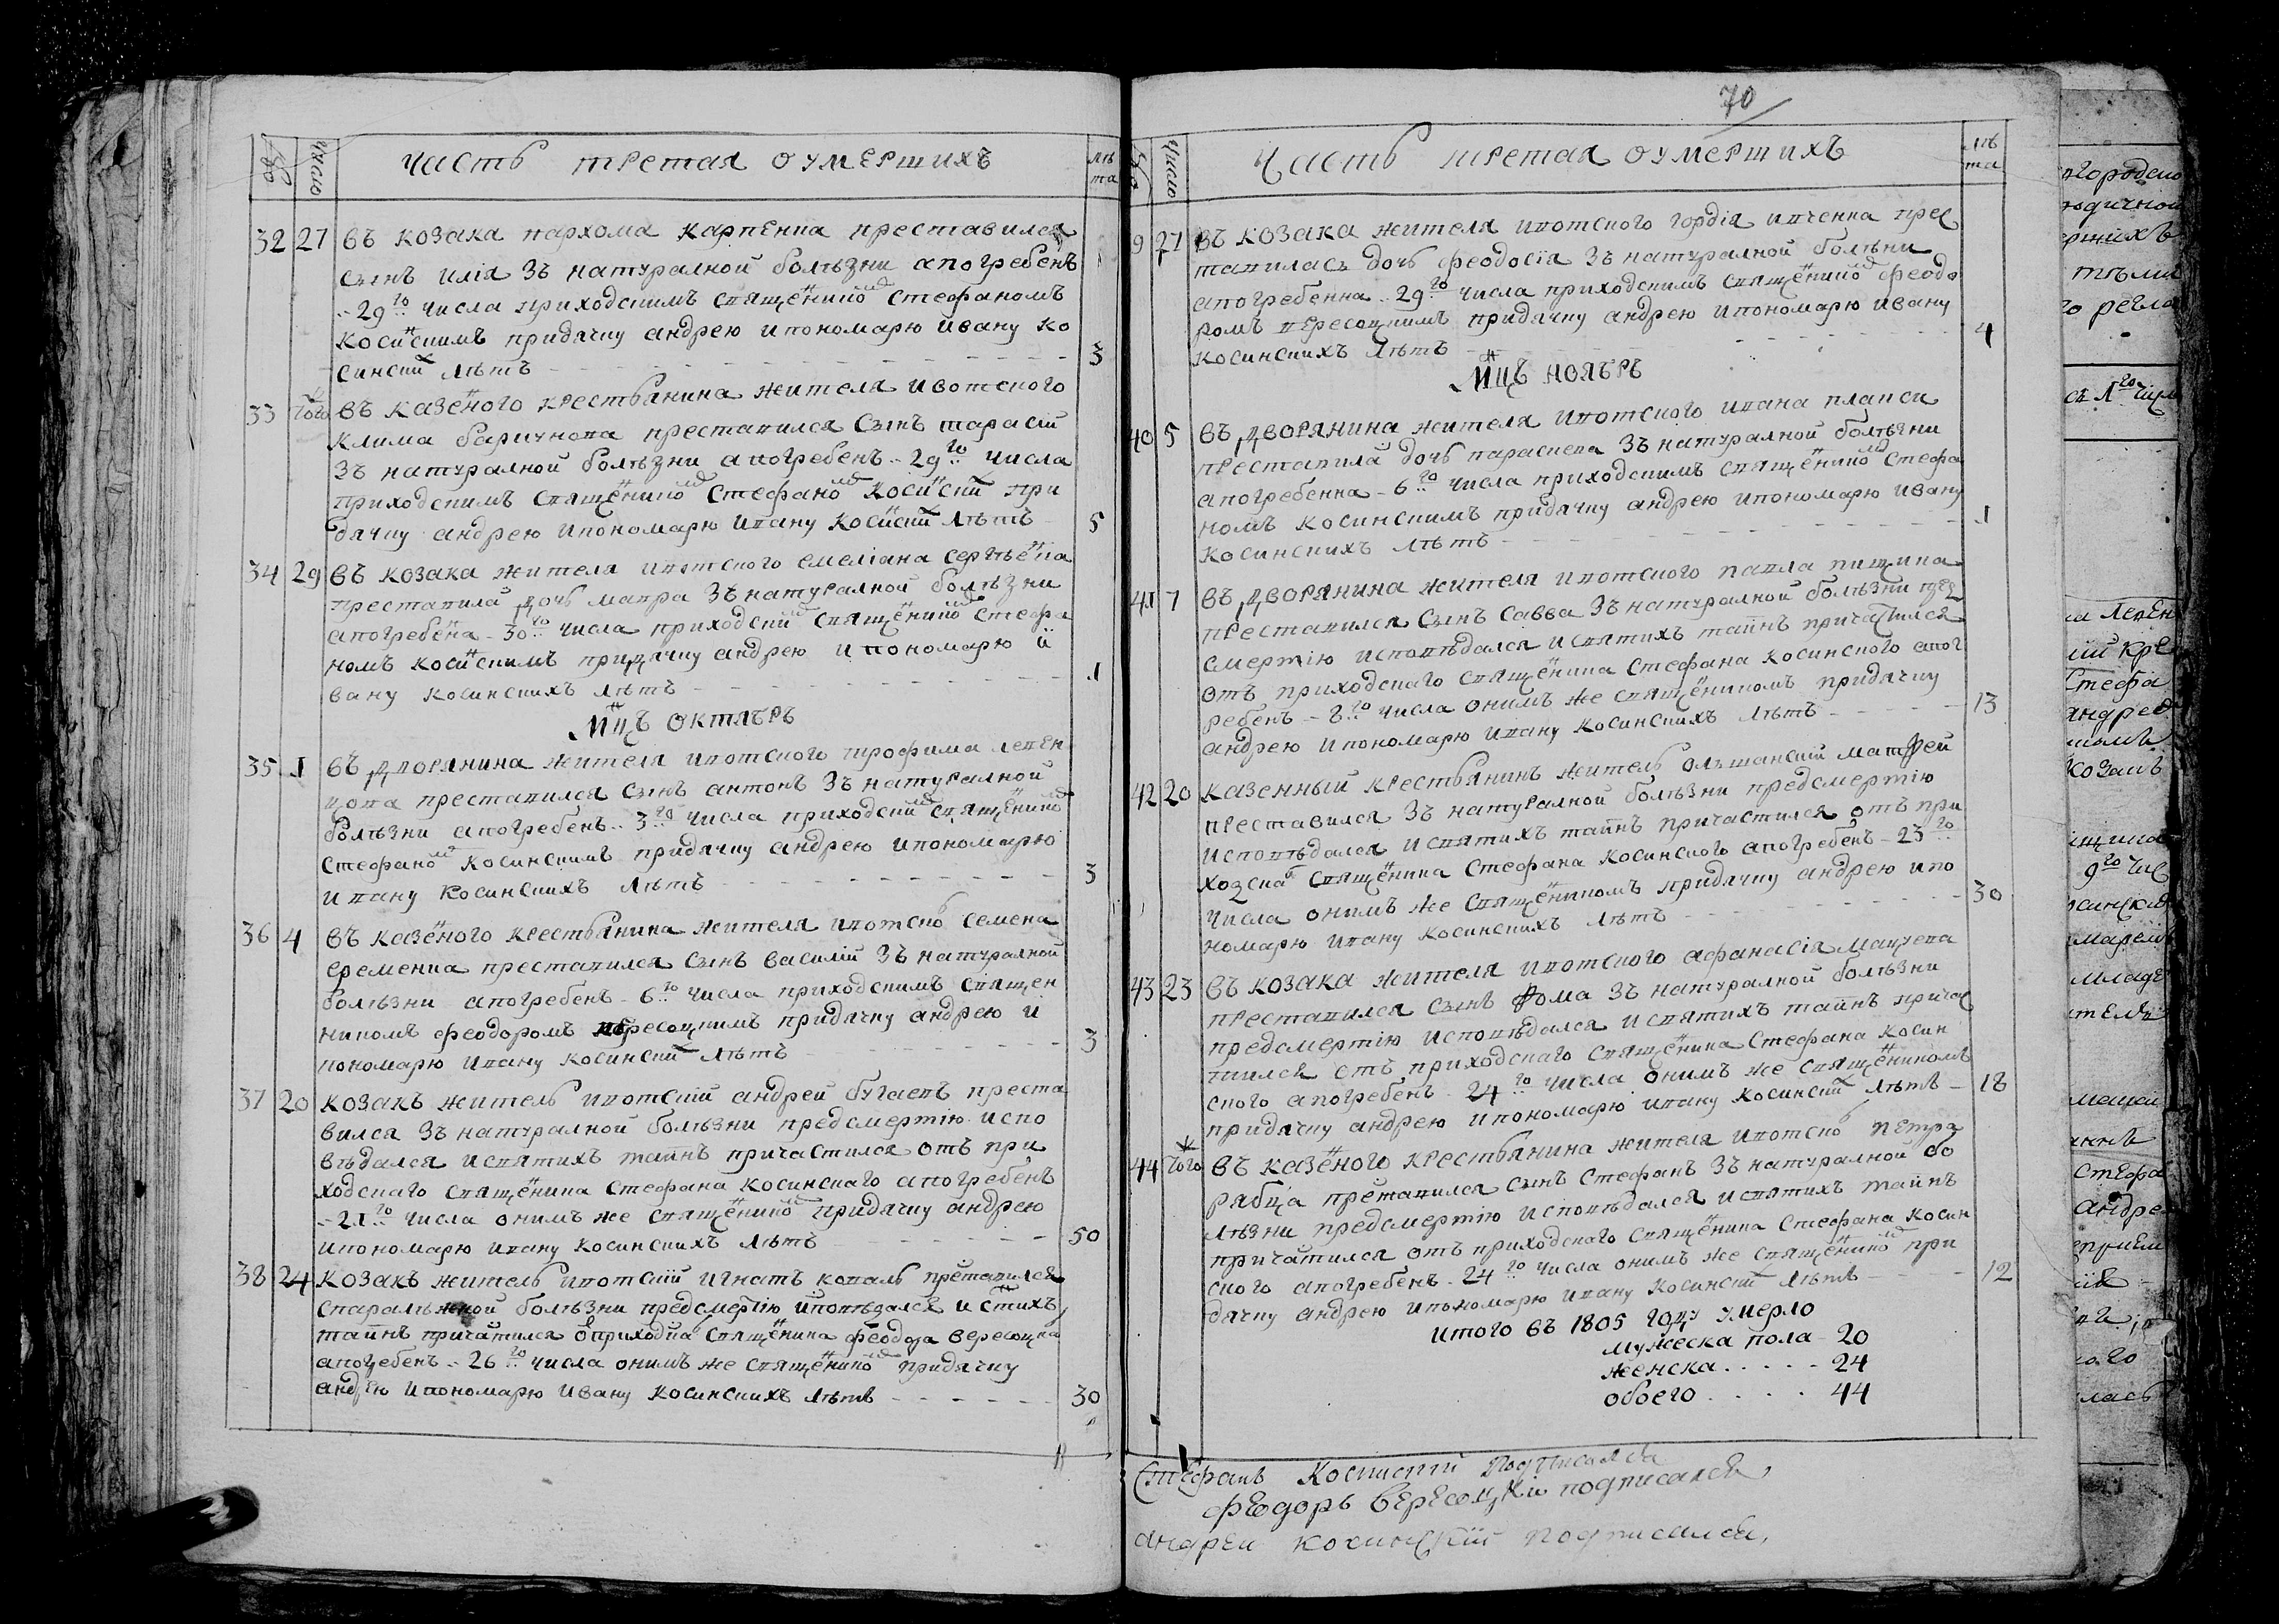 Часть третая оумершихъ
число
лѣ
та
32 27 въ козака пархома карпенка преставился
сынъ илія зъ натуралной болѣзни апогребенъ
29го числа приходскимъ священико Стефаномъ
косинскимъ придячку андрею ипономарю ивану ко
синских лѣтъ 3
33 того въ казеного крестьянина жителя ивотского
клима баричкова преставился сынъ тарасій
зъ натуралной болѣзни апогребенъ 29го числа
приходскимъ священико Стефано Косински при
дячку андрею ипономарю ивану косински лѣтъ 5
34 29 въ козака жителя ивотского емеліана сергѣена
преставила дочь мавра зъ натуралной болѣзни
апогребена 30го числа приходски священико Стефа
номъ косинскимъ придячку андрею ипономарю и
вану косинскихъ лѣтъ 1
мцъ октябрь
35 1 въ дворянина жителя ивотского трофима левен
цова преставился сынъ антонъ зъ натуралной
болѣзни апогребенъ 3го числа приходски священико
Стефано косинскимъ придячку андрею ипономарю
ивану косинскихъ лѣтъ 3
36 4 въ казеного крестьянина жителя ивотско семена
еременка преставился сынъ василій зъ натуралной
болѣзни апогребенъ 6го числа приходскимъ священ
никомъ феодоромъ вересоцкимъ придячку андрею и
пономарю ивану косински лѣтъ 3
37 20 козакъ житель ивотскій андрей бугаевъ преста
вился зъ натуралной болѣзни предсмертію испо
вѣдался исвятихъ таинъ причастился отъ при
ходскаго священика Стефана косинскаго апогребенъ
21го числа онимъ же священико придячку андрею
ипономарю ивану косинскихъ лѣтъ 50
38 24 козакъ житель ивотскій игнатъ коваль преставился
спаралѣжной болѣзни предсмертію исповѣдался и стихъ
таинъ причатился о приходска священика феодора вересоцка
апогребенъ 26го числа онимъ же священико придячку
андрею ипономарю ивану косинскихъ лѣтъ 30
70
число
Часть третая оумершихъ
лѣ
та
9 27 въ козака жителя ивотского гордія ивченка прес
тавилась дочь феодосія зъ натуралной болѣзни
апогребенна 29го числа приходскимъ священико феодо
ромъ вересоцкимъ придячку андрею ипономарю ивану
косинскихъ лѣтъ 4
мцъ ноябрь
40 5 въ дворянина жителя ивотского ивана плакси
преставила дочь параскева зъ натуралной болѣзни
апогребенна 6го числа приходскимъ священико Стефа
номъ косинскимъ придячку андрею ипономарю ивану
косинскихъ лѣтъ 1
41 7 въ дворянина жителя ивотского павла пищика
преставился сынъ савва зъ натуралной болѣзни пред
смертію исповѣдался исвятихъ таинъ причастился
отъ приходскаго священика Стефана косинского апог
ребенъ 8го числа онимъ же священикомъ придячку
андрею ипономарю ивану косинскихъ лѣтъ 13
42 20 казенный крестьянинъ житель олшанскій матфей
преставился зъ натуралной болѣзни предсмертію
исповѣдался исвятихъ таинъ причастился отъ при
ходска священика Стефана косинского апогребенъ 23го
числа онимъ же священикомъ придячку андрею ипо
номарю ивану косинскихъ лѣтъ 30
43 23 въ козака жителя ивотского афанасія мацуева
преставился сынъ фома зъ натуралной болѣзни
предсмертію исповѣдался исвятихъ таинъ причас
тился отъ приходскаго священика Стефана косин
ского апогребенъ 24го числа онимъ же священикомъ
придячку андрею ипономарю ивану косински лѣтъ 18
44 того въ казеного крестьянина жителя ивотско петра
рябца претавился сынъ Стефанъ зъ натуралной бо
лѣзни предсмертію исповѣдался исвятихъ таинъ
причатился отъ приходскаго священика Стефана косин
ского апогребенъ 24го числа онимъ же священико при
дячку андрею ипономарю ивану косински лѣтъ 12
итого въ 1805 году умерло
мужеска пола 20
женска 24
обоего 44
Стефанъ Косинскій подписался
феодоръ вересоцкій подписался
андрей косинскій подписался